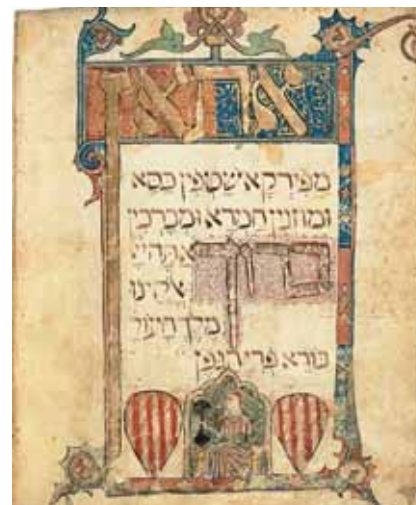 אתאן
מפירקא שטפין כסא
ומוזגין חמרא ומברכין
ברוך אתה יי
אלהינו
מלך
בורא פרי הגפן